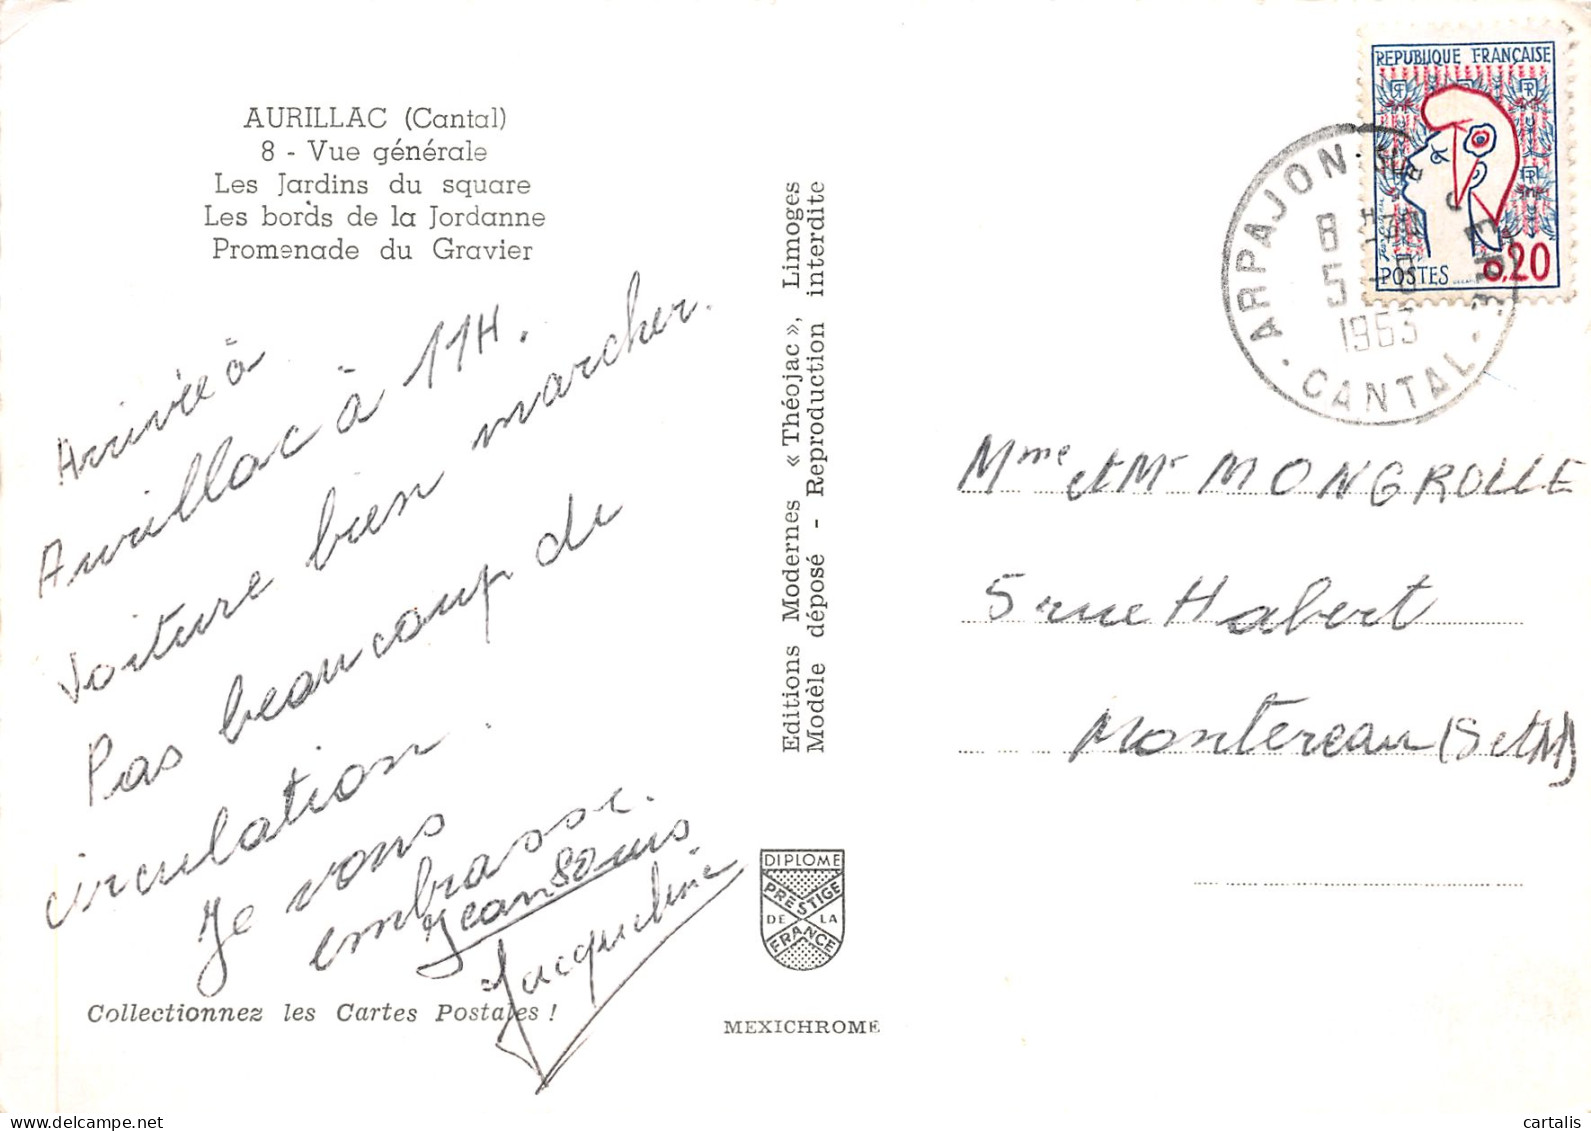 AURILLAC (Cantal)
8 - Vue générale
Les Jardins du square
Les bords de la Jordanne
Promenade du Gravier
Arrivée à
Aurillac à 11H.
Voiture bien marcher.
Pas beaucoup de
circulation.
Je vous
embrasse.
Jean
Jacqueline
Collectionnez les Cartes Postales !
Editions Modernes « Théojac », Limoges
Modèle déposé - Reproduction interdite
DIPLOME
PRESTIGE
DE LA
FRANCE
MEXICHROME
REPUBLIQUE FRANÇAISE
POSTES 0,20
ARPAJON
8
5
1963
CANTAL
Mme et Mr MONGROLLE
5 rue Habert
Montereau (S et M)
cartalis